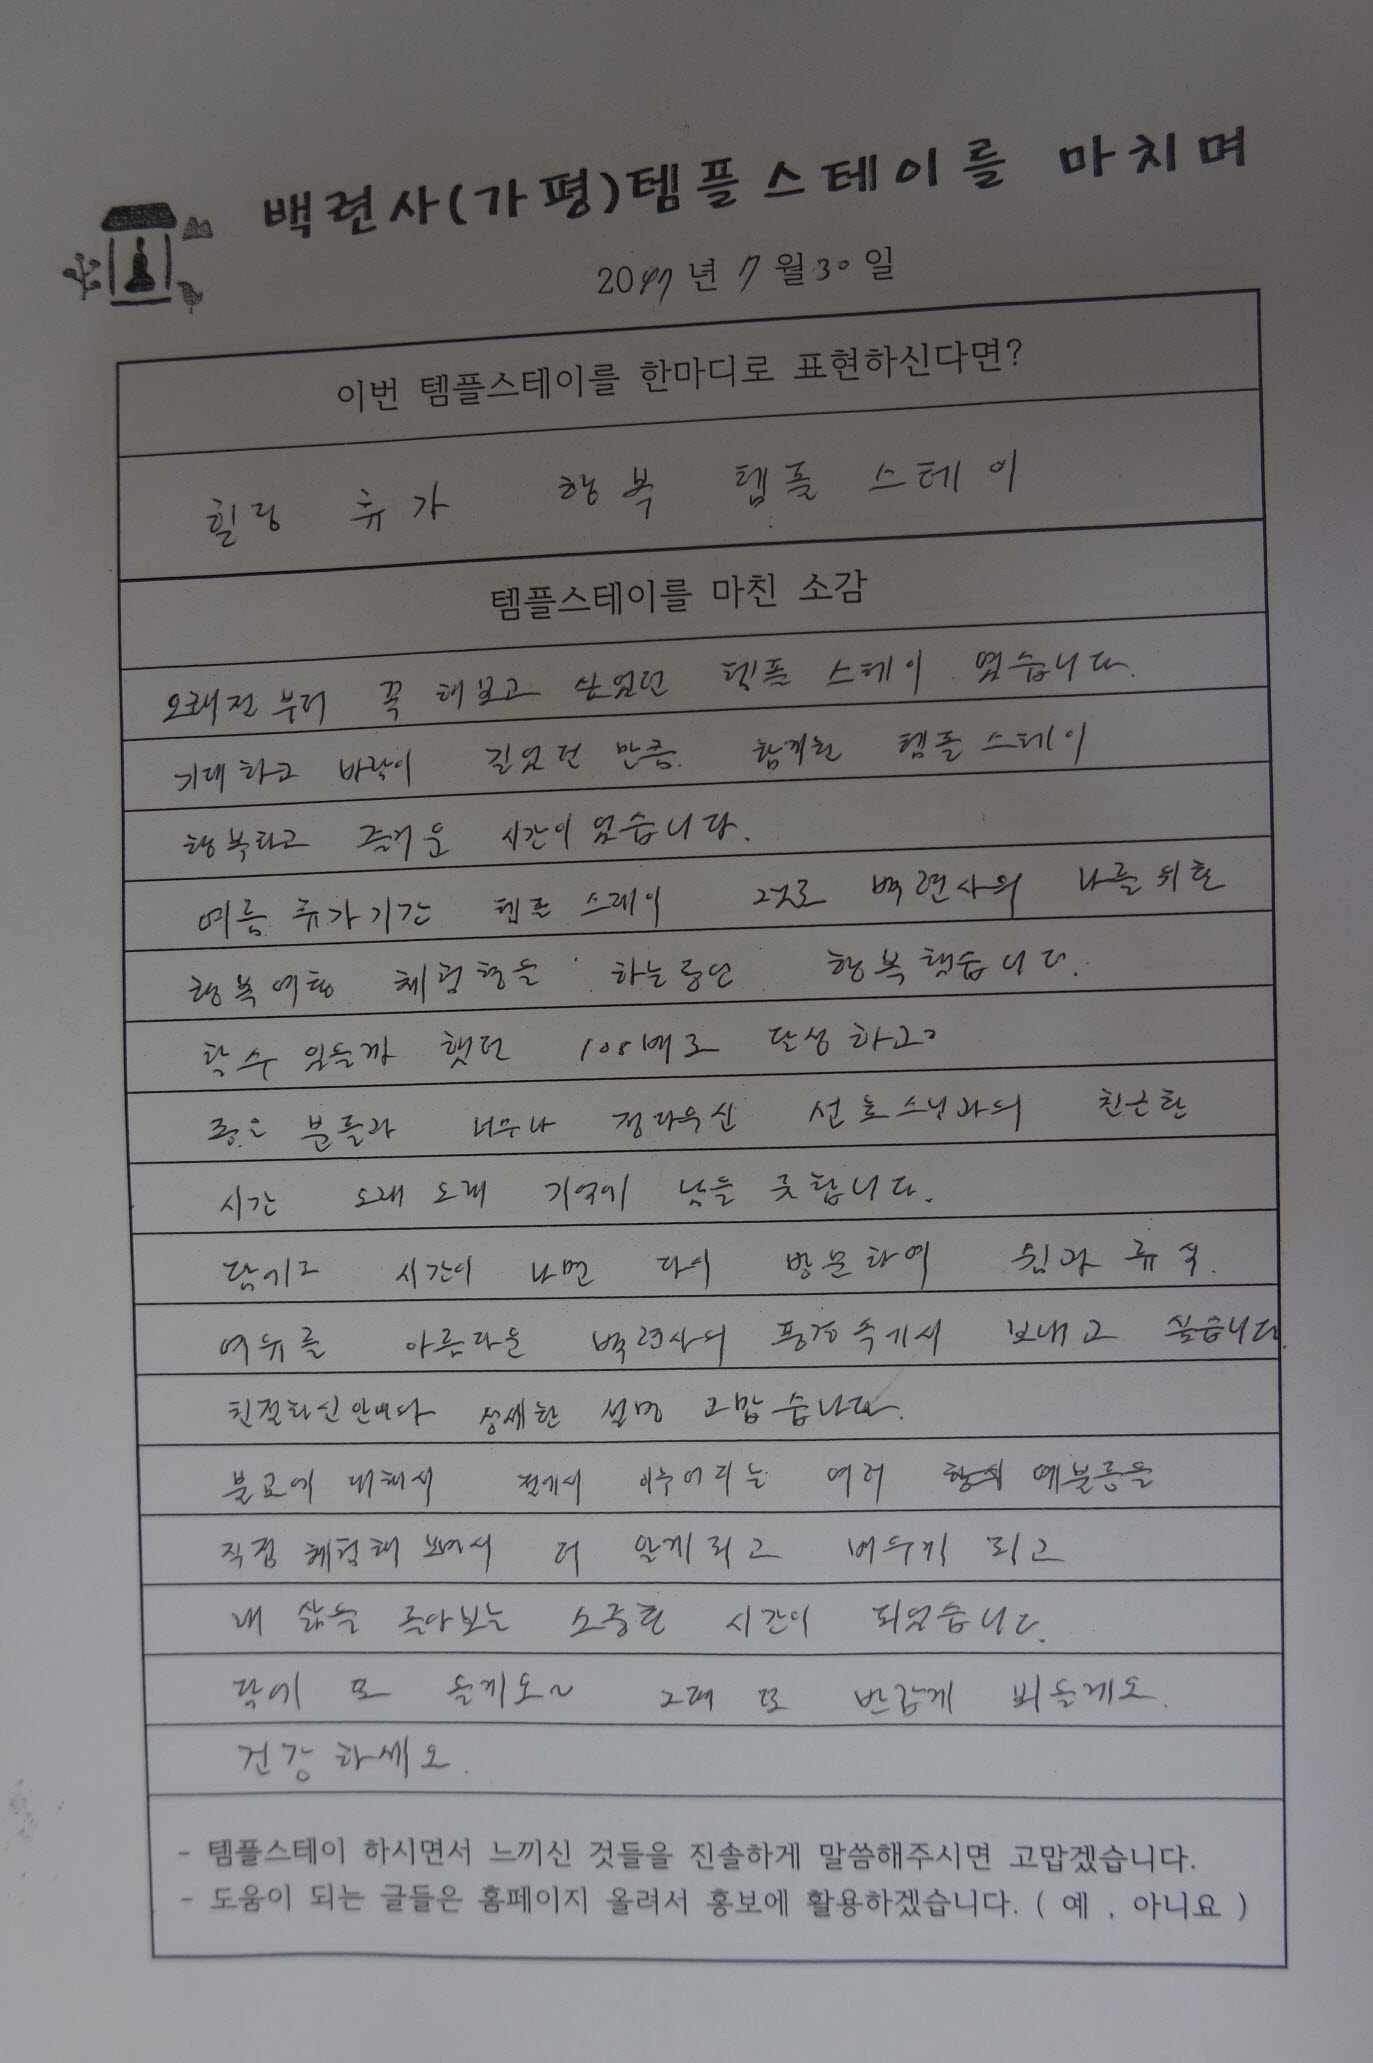 백련사(가평)템플스테이를 마치며
2017년 7월 30일
이번 템플스테이를 한마디로 표현하신다면?
힐링 휴가 행복 템플 스테이
템플스테이를 마친 소감
오래전 부터 꼭 해보고 싶었던 템플 스테이 였습니다.
기대하고 바램이 길었던 만큼 함께한 템플 스테이
행복하고 즐거운 시간이 였습니다.
여름 휴가기간 템플 스테이 백련사의 나를위한
행복여행 체험형을 하는동안 행복했습니다.
할수 있을까 했던 108배도 달성하고
좋은 분들과 너무나 정다우신 선효스님과의 친근한
시간 오래 오래 기억에 남을 듯합니다.
담에도 시간이 나면 다시 방문하여 쉼과 휴식.
여유를 아름다운 백련사의 풍경속에서 보내고 싶습니다.
친절하신 안내와 상세한 설명 고맙습니다.
불교에 대해서 절에서 이루어지는 여러 예불등을
직접 체험해 보면서 더 알게되고 배우게 되고
내 삶을 돌아보는 소중한 시간이 되었습니다.
담에 또 올게요~ 그때 또 반갑게 뵈올게요.
건강하세요.
- 템플스테이 하시면서 느끼신 것들을 진솔하게 말씀해주시면 고맙겠습니다.
- 도움이 되는 글들은 홈페이지 올려서 홍보에 활용하겠습니다. ( 예 , 아니요 )